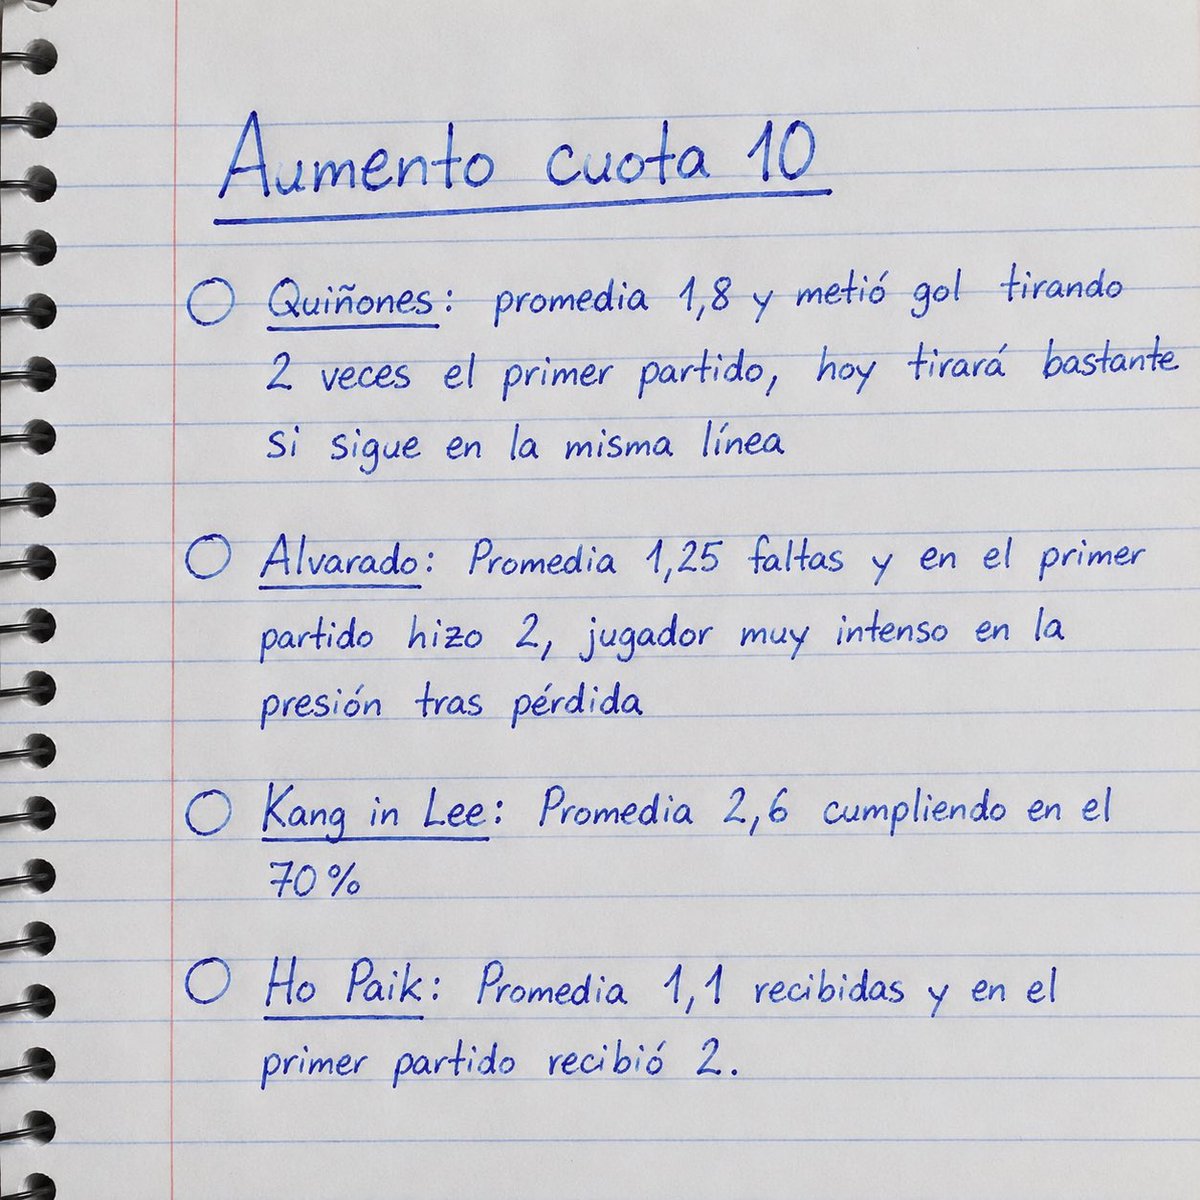 Aumento cuota 10
Quiñones: promedia 1,8 y metió gol tirando
2 veces el primer partido, hoy tirará bastante
si sigue en la misma línea
Alvarado: Promedia 1,25 faltas y en el primer
partido hizo 2, jugador muy intenso en la
presión tras pérdida
Kang in Lee: Promedia 2,6 cumpliendo en el
70%
Ho Paik: Promedia 1,1 recibidas y en el
primer partido recibió 2.